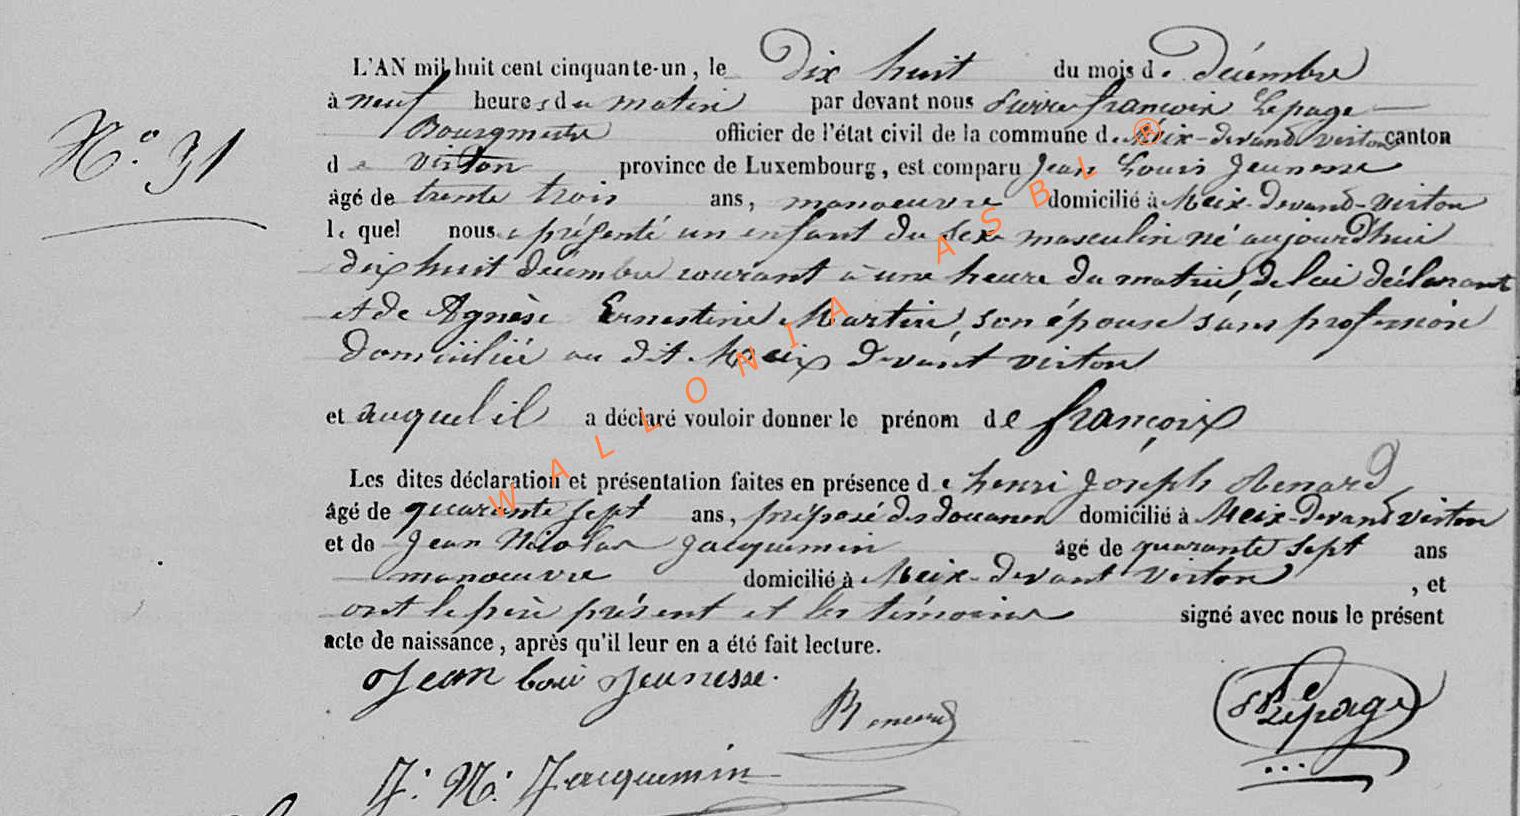 L'AN mil huit cent cinquante-un, le Dix huit du mois de Décembre
à neuf heures du matin par devant nous Pierre françois Lepage
N° 31
Bourgmestre officier de l'état civil de la commune de Meix-devand virton canton
de virton province de Luxembourg, est comparu Jean Louis Jeunesse
âgé de trente trois ans, manoeuvre domicilié à Meix-Devand-Virton
le quel nous a présenté un enfant du sexe masculin né aujourd'hui
dix huit décembre courant à une heure du matin, de lui déclarant
et de Agnèse Ernestine Martin, son épouse sans profession
domiciliée au dit Meix devant virton
et auquel il a déclaré vouloir donner le prénom de françois
Les dites déclaration et présentation faites en présence de henri Joseph Renard
âgé de quarante sept ans, préposé des douanes domicilié à Meix-Devand virton
et de Jean Nicolas Jacquemin âgé de quarante sept ans
manoeuvre domicilié à Meix-devant Virton, et
ont le père présent et les témoins signé avec nous le présent
acte de naissance, après qu'il leur en a été fait lecture.
Jean Loui Jeunesse.
Renard
Lepage
J. N. Jacquemin
WALLONIA ASBL ®